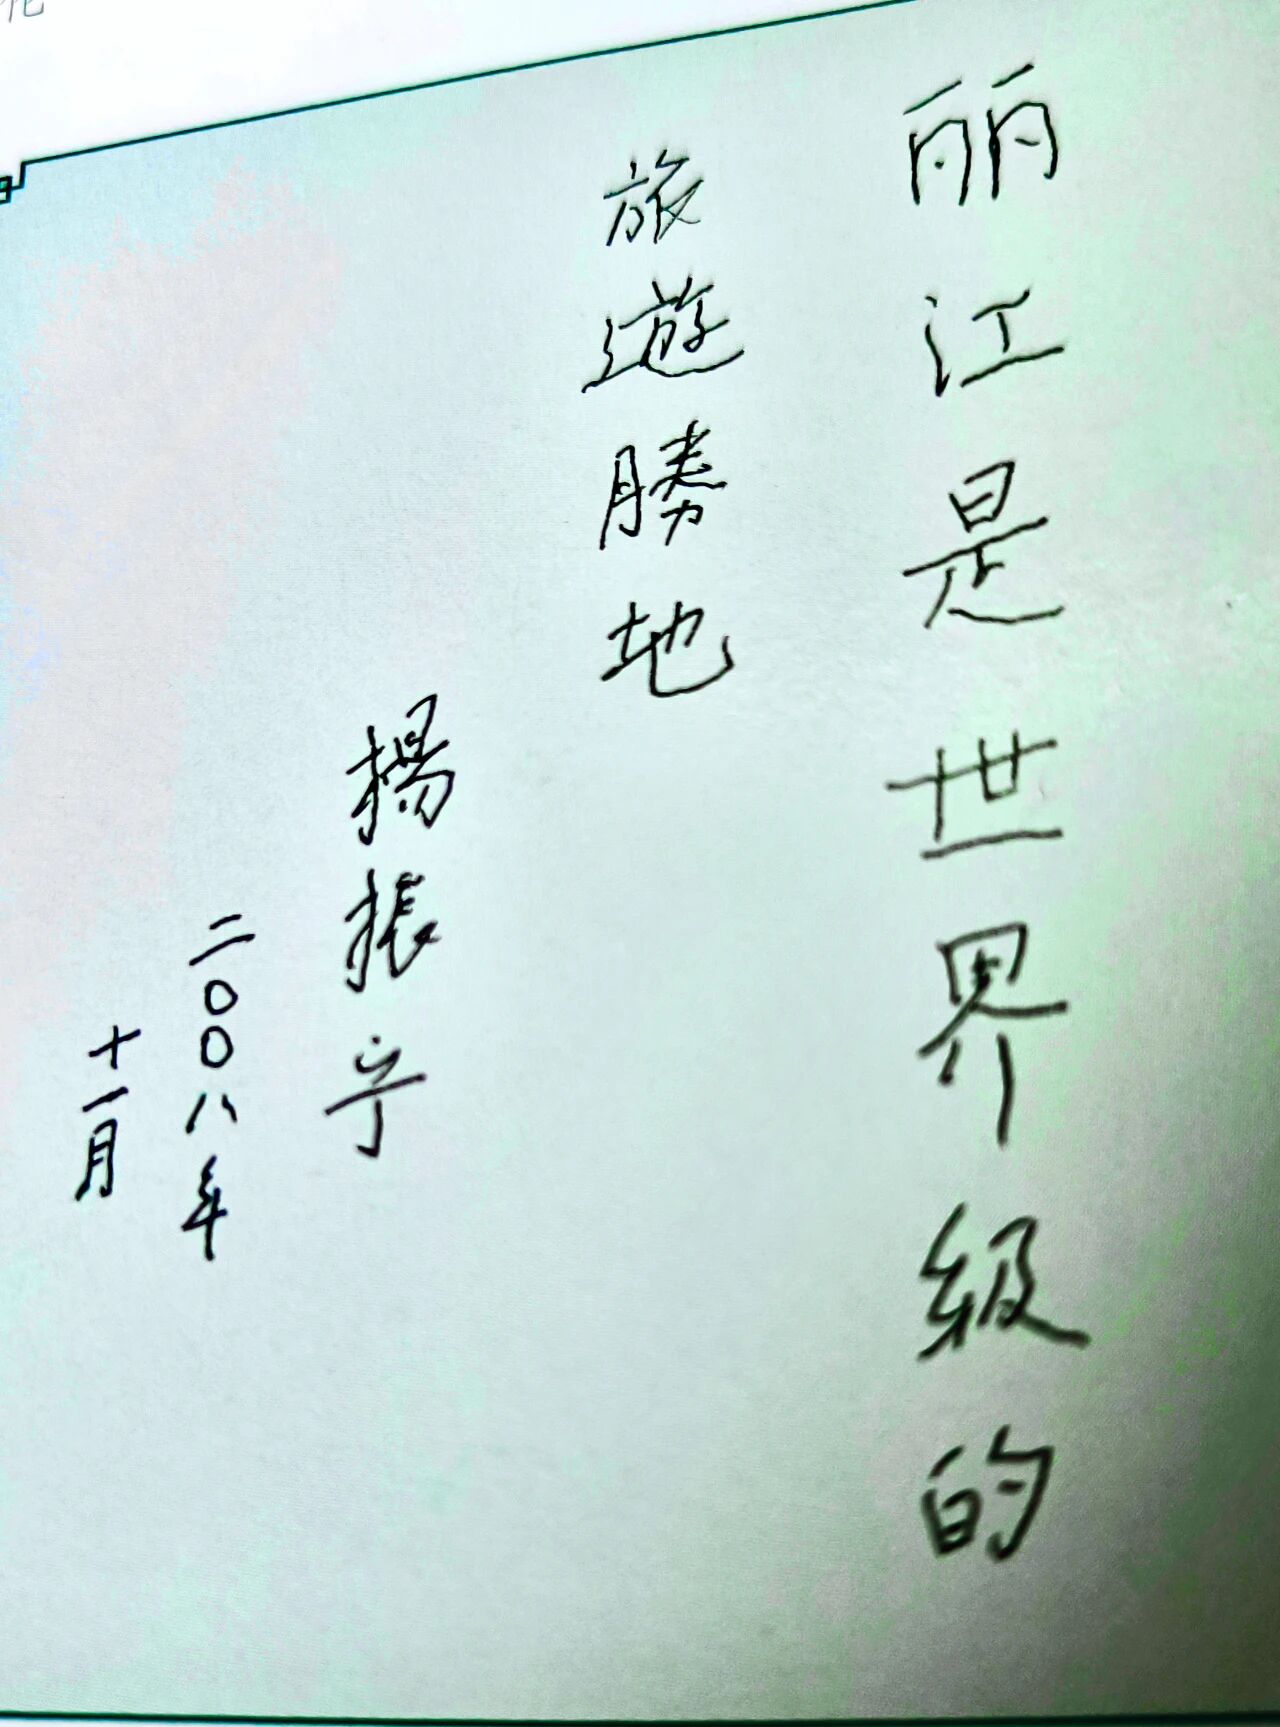 丽江是世界级的
旅遊勝地
楊振宁
二〇〇八年
十一月